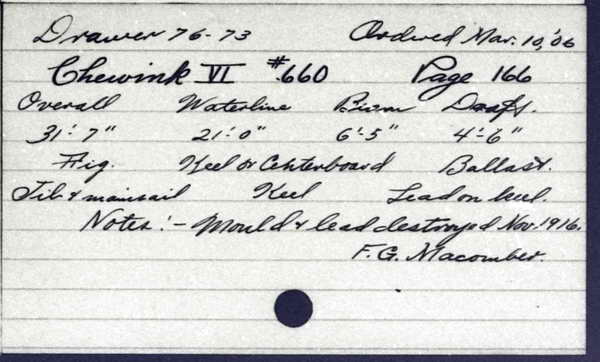 Drawer 76-73 Ordered Mar. 10,'06
Chewink VI #660 Page 166
Overall Waterline Beam Draft.
31'-7" 21'-0" 6'-5" 4'-6"
Rig. Keel or Centerboard Ballast.
Jib & mainsail Keel Lead on keel.
Notes:- Mould & lead destroyed Nov. 1916.
F.G. Macomber.